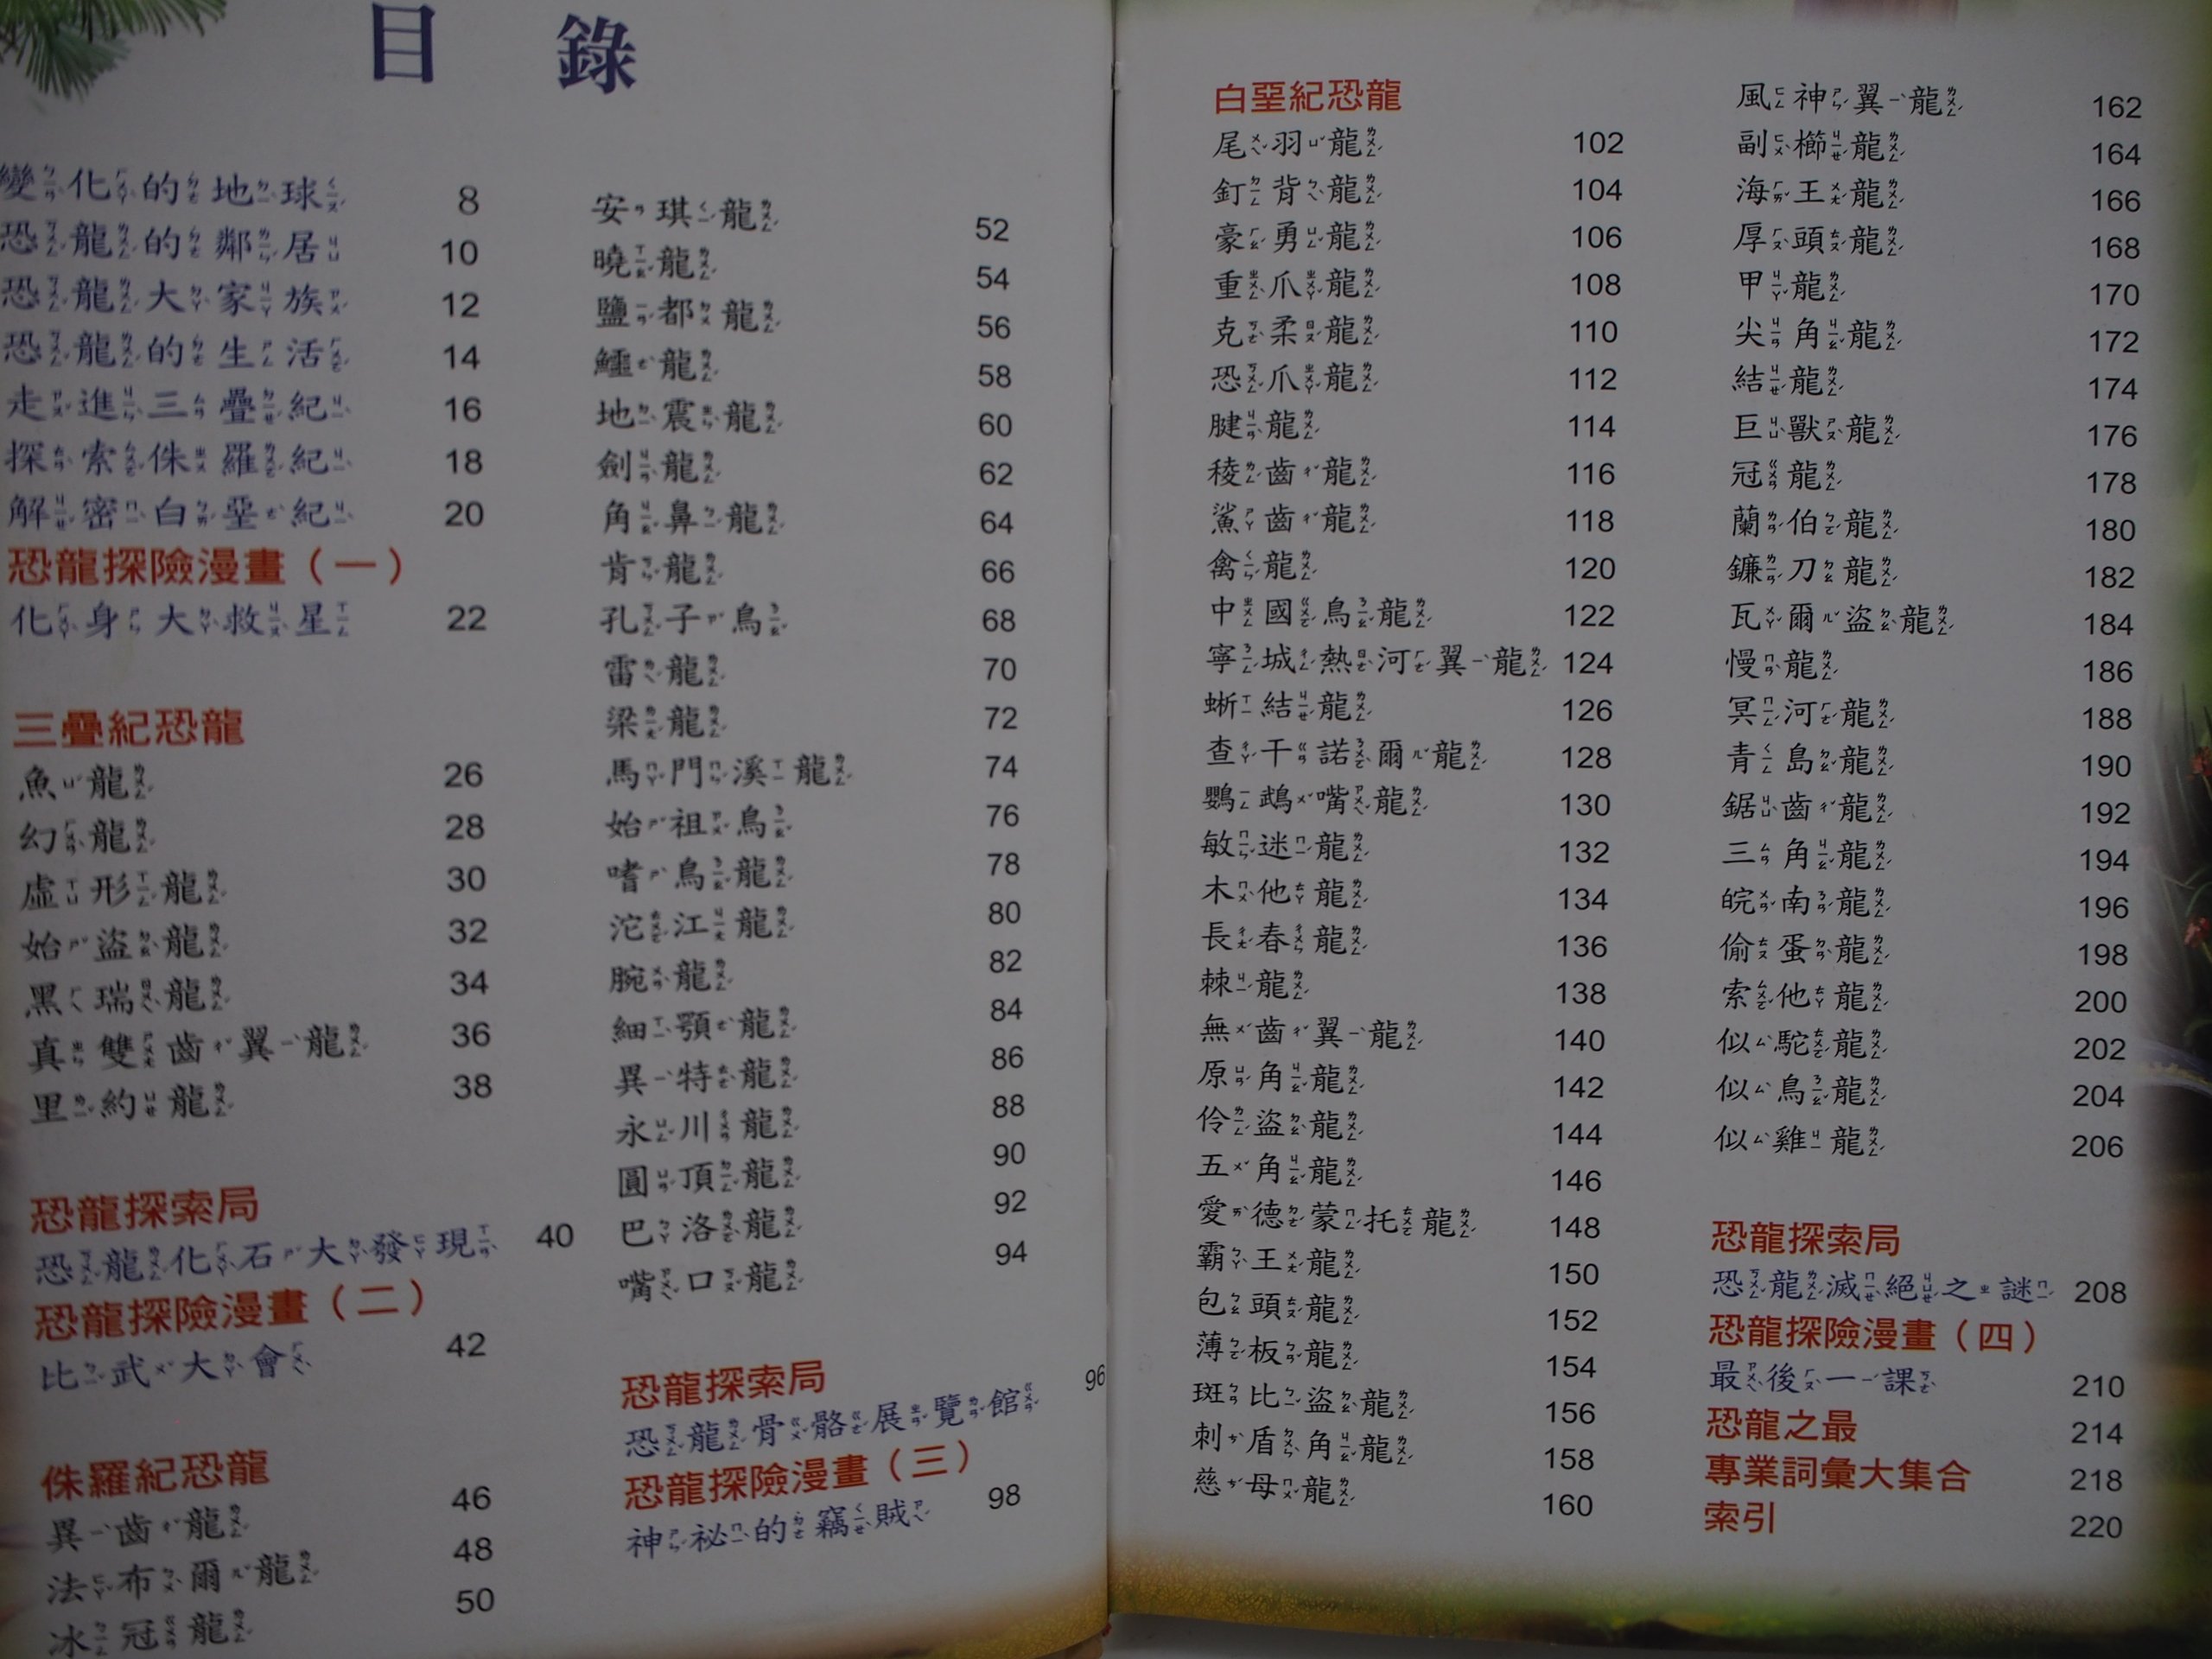 目 錄
變化的地球 8
恐龍的鄰居 10
恐龍大家族 12
恐龍的生活 14
走進三疊紀 16
探索侏羅紀 18
解密白堊紀 20
恐龍探險漫畫（一）
化身大救星 22
三疊紀恐龍
魚龍 26
幻龍 28
虛形龍 30
始盜龍 32
黑瑞龍 34
真雙齒翼龍 36
里約龍 38
恐龍探索局
恐龍化石大發現 40
恐龍探險漫畫（二）
比武大會 42
侏羅紀恐龍
異齒龍 46
法布爾龍 48
冰冠龍 50
安琪龍 52
曉龍 54
鹽都龍 56
鱷龍 58
地震龍 60
劍龍 62
角鼻龍 64
肯龍 66
孔子鳥 68
雷龍 70
梁龍 72
馬門溪龍 74
始祖鳥 76
嗜鳥龍 78
沱江龍 80
腕龍 82
細顎龍 84
異特龍 86
永川龍 88
圓頂龍 90
巴洛龍 92
嘴口龍 94
恐龍探索局
恐龍骨骼展覽館 96
恐龍探險漫畫（三）
神祕的竊賊 98
白堊紀恐龍
尾羽龍 102
釘背龍 104
豪勇龍 106
重爪龍 108
克柔龍 110
恐爪龍 112
腱龍 114
稜齒龍 116
鯊齒龍 118
禽龍 120
中國鳥龍 122
寧城熱河翼龍 124
蜥結龍 126
查干諾爾龍 128
鸚鵡嘴龍 130
敏迷龍 132
木他龍 134
長春龍 136
棘龍 138
無齒翼龍 140
原角龍 142
伶盜龍 144
五角龍 146
愛德蒙托龍 148
霸王龍 150
包頭龍 152
薄板龍 154
斑比盜龍 156
刺盾角龍 158
慈母龍 160
風神翼龍 162
副櫛龍 164
海王龍 166
厚頭龍 168
甲龍 170
尖角龍 172
結龍 174
巨獸龍 176
冠龍 178
蘭伯龍 180
鐮刀龍 182
瓦爾盜龍 184
慢龍 186
冥河龍 188
青島龍 190
鋸齒龍 192
三角龍 194
皖南龍 196
偷蛋龍 198
索他龍 200
似駝龍 202
似鳥龍 204
似雞龍 206
恐龍探索局
恐龍滅絕之謎 208
恐龍探險漫畫（四）
最後一課 210
恐龍之最 214
專業詞彙大集合 218
索引 220